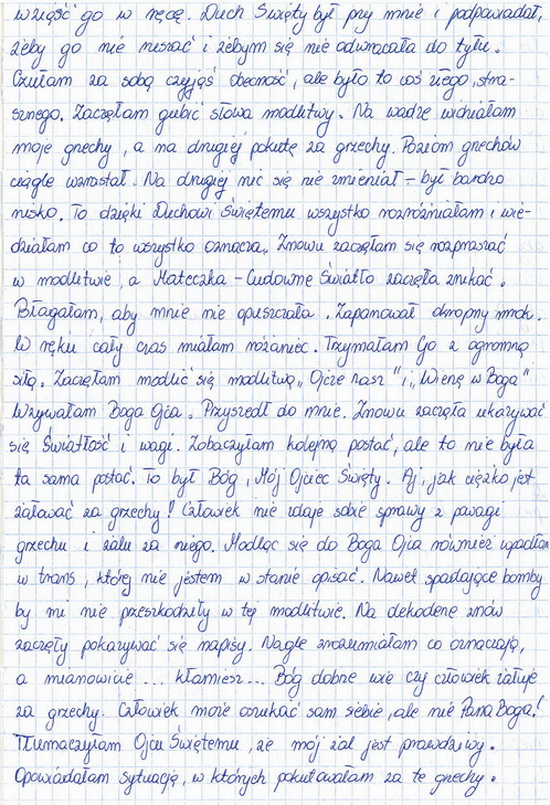 wziąść go w ręcę. Duch Święty był przy mnie i podpowiadał,
żeby go nie ruszać i żebym się nie odwracała do tyłu.
Czułam za sobą czyjąś obecność, ale było to coś złego, stra-
sznego. Zaczęłam gubić słowa modlitwy. Na wadze widziałam
moje grzechy, a na drugiej pokutę za grzechy. Poziom grzechów
ciągle wzrastał. Na drugiej nic się nie zmieniał - był bardzo
nisko. To dzięki Duchowi Świętemu wszystko rozróżniałam i wie-
działam co to wszystko oznacza. Znowu zaczęłam się rozpraszać
w modlitwie, a Mateczka - Cudowne Światło zaczęła znikać.
Błagałam, aby mnie nie opuszczała. Zapanował okropny mrok.
W ręku cały czas miałam różaniec. Trzymałam Go z ogromną
siłą. Zaczęłam modlić się modlitwą „Ojcze nasz" i „Wierzę w Boga"
Wzywałam Boga Ojca. Przyszedł do mnie. Znowu zaczęła ukazywać
się Światłość i wagi. Zobaczyłam kolejną postać, ale to nie była
ta sama postać. To był Bóg, Mój Ojciec Święty. Aj, jak ciężko jest
żałować za grzechy! Człowiek nie zdaje sobie sprawy z powagi
grzechu i żalu za niego. Modląc się do Boga Ojca również wpadłam
w trans, której nie jestem w stanie opisać. Nawet spadające bomby
by mi nie przeszkodziły w tej modlitwie. Na dekoderze znów
zaczęły pokazywać się napisy. Nagle zrozumiałam co oznaczają,
a mianowicie ... kłamiesz ... Bóg dobrze wie czy człowiek żałuje
za grzechy. Człowiek może oszukać sam siebie, ale nie Pana Boga!
Tłumaczyłam Ojcu Świętemu, że mój żal jest prawdziwy.
Opowiadałam sytuację, w których pokutowałam za te grzechy.